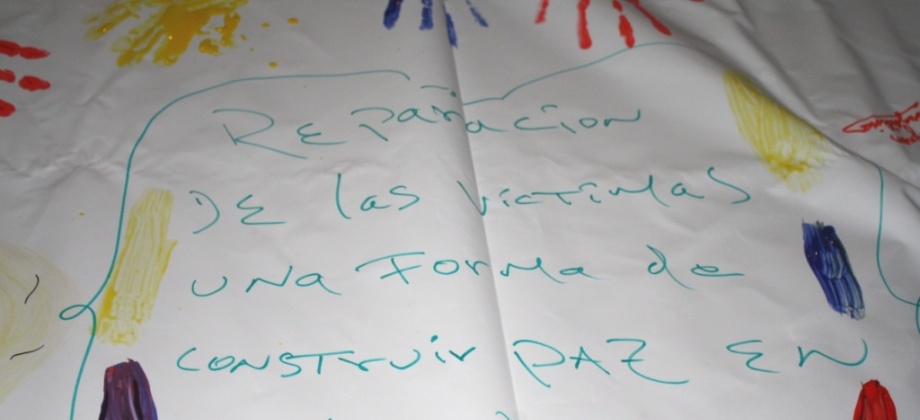 REPARACION
DE las VICTIMas
UNa Forma de
CONSTruir PAZ EN